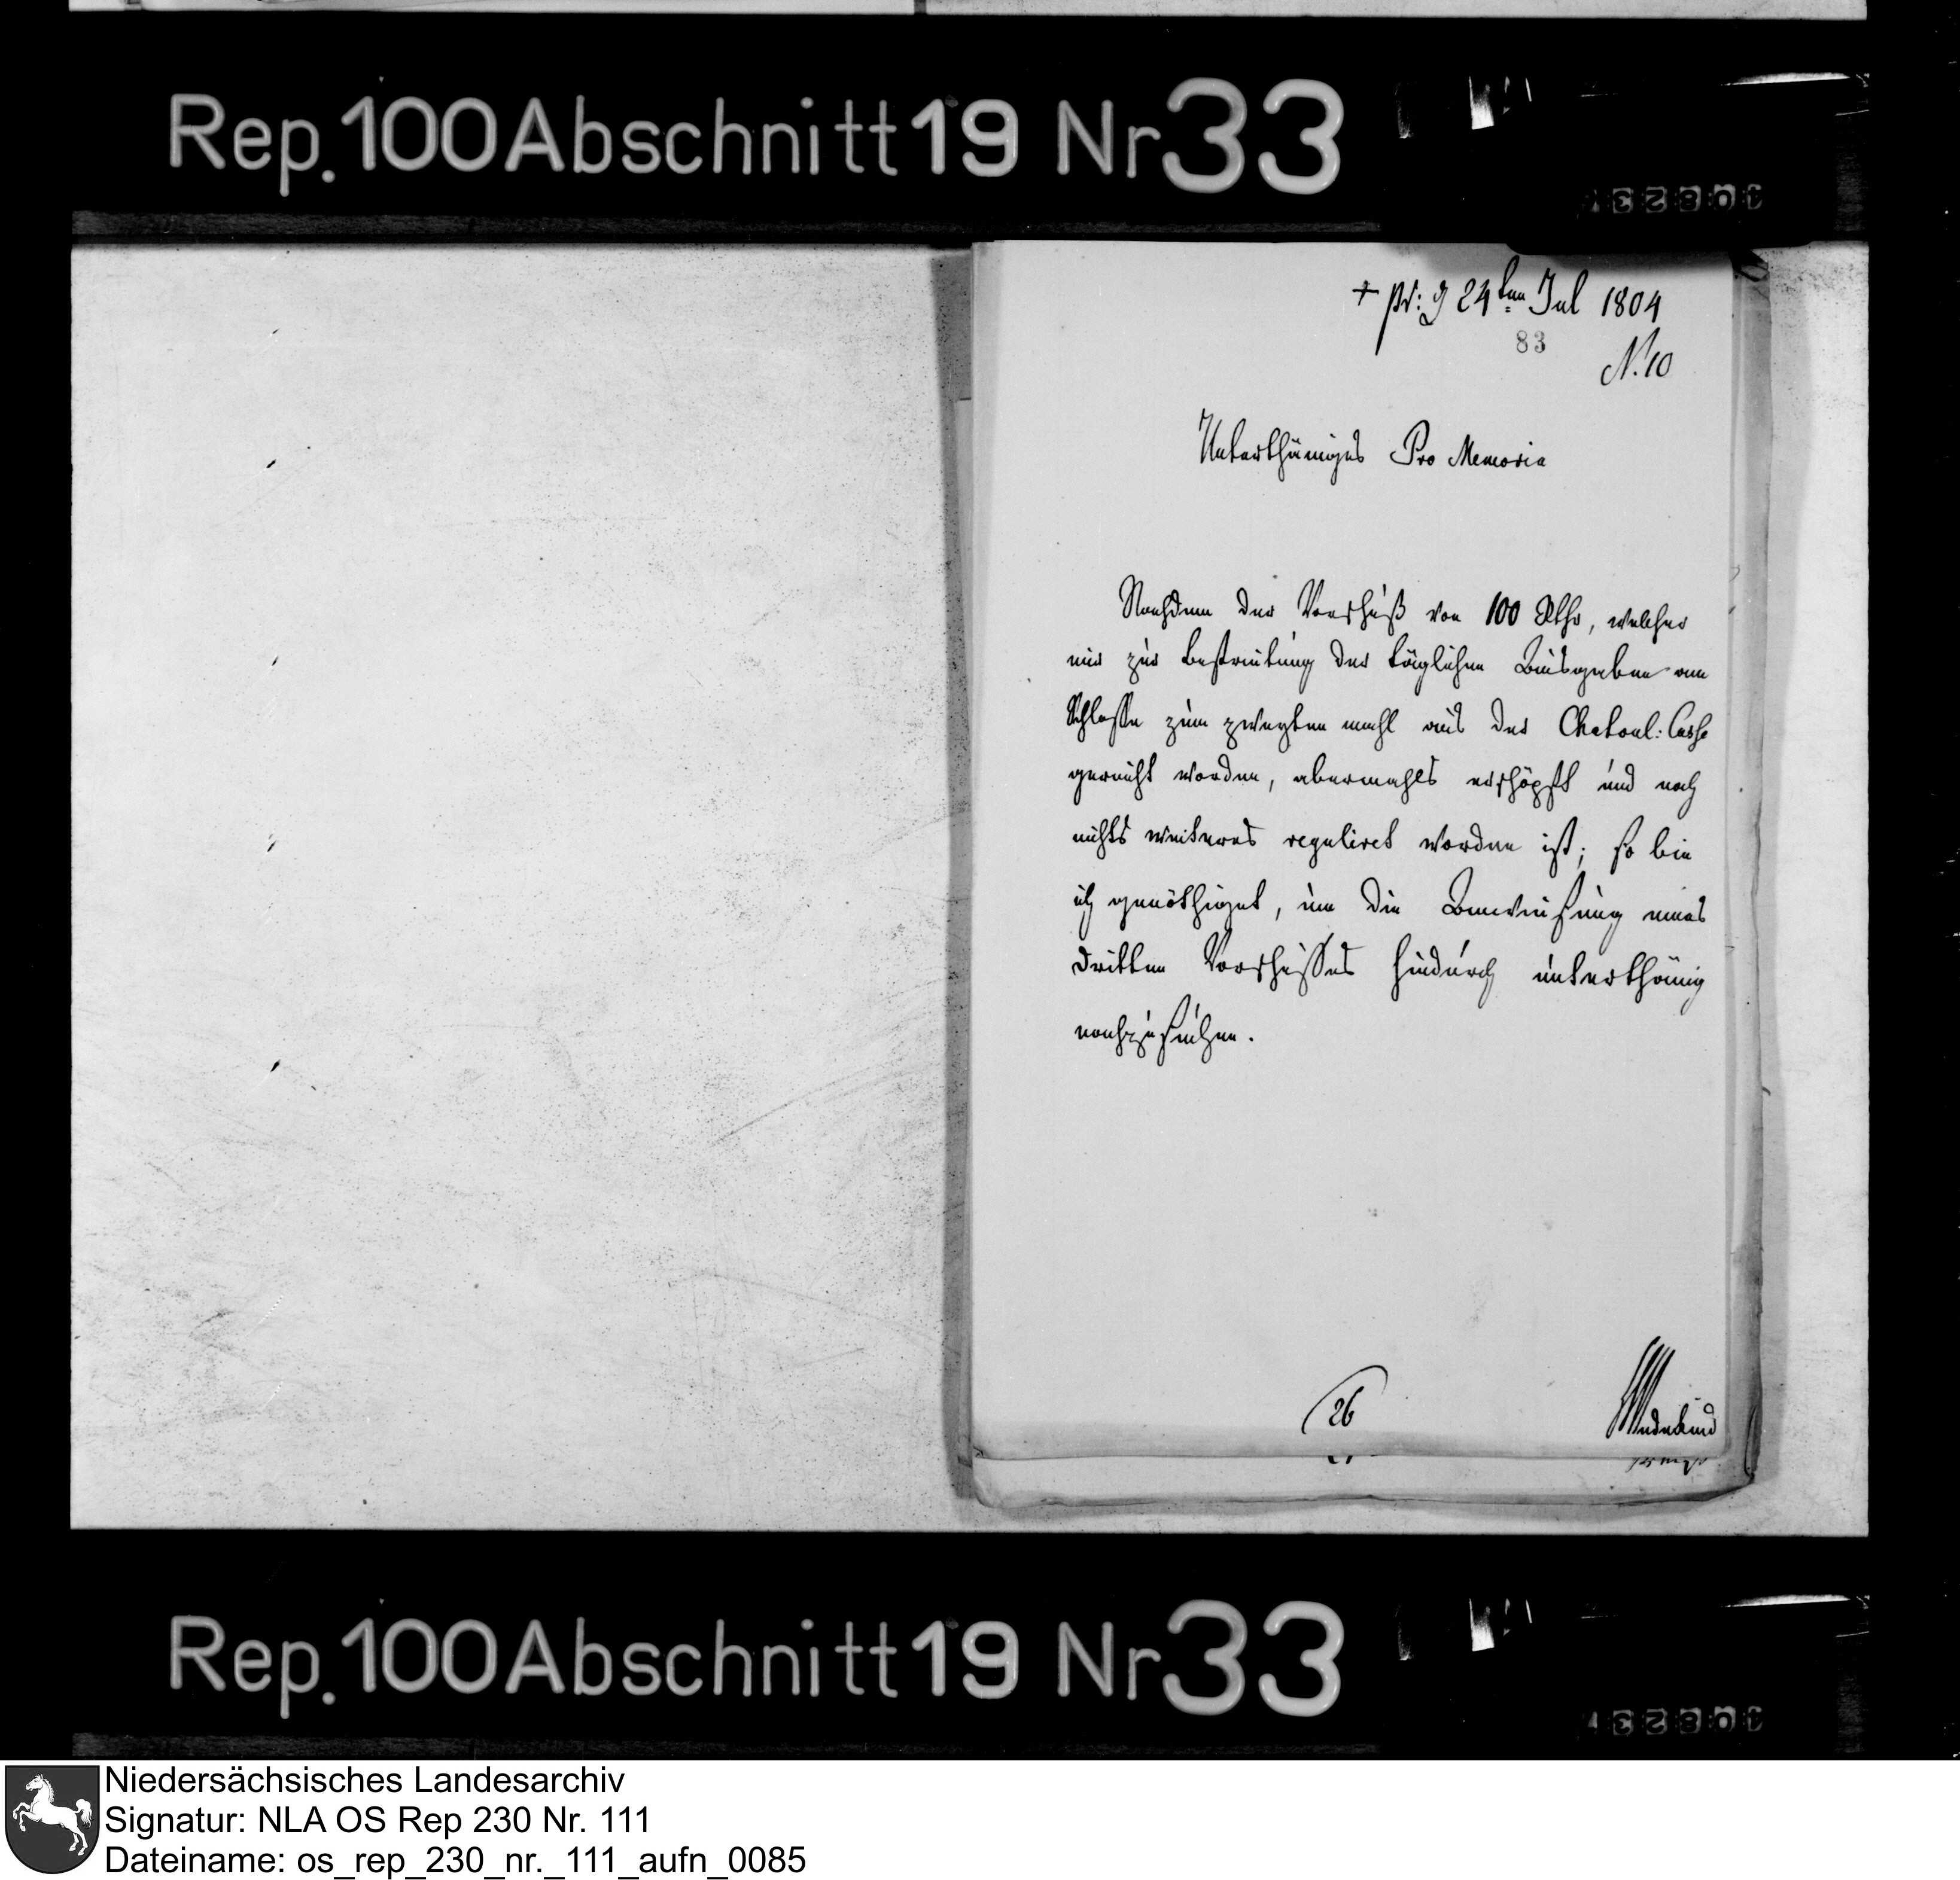 Rep. 100 Abschnitt 19 Nr 33
+ pr: d 24ten Jul 1804
83
N. 10
Unterthäniges Pro Memoria
Nachdem der Vorschuß von 100 Rthr, welcher
mir zur Bestreitung der täglichen Ausgaben am
Schlosse zum zweyten mahl aus der Chatoul: Casse
gereicht worden, abermahls erschöpft und noch
nichts weiteres reguliret worden ist; so bin
ich genöthiget, um die Anweisung eines
dritten Vorschußes hiedurch unterthänig
nachzusuchen.
26
Wedekind
Rep. 100 Abschnitt 19 Nr 33
Niedersächsisches Landesarchiv
Signatur: NLA OS Rep 230 Nr. 111
Dateiname: os_rep_230_nr._111_aufn_0085